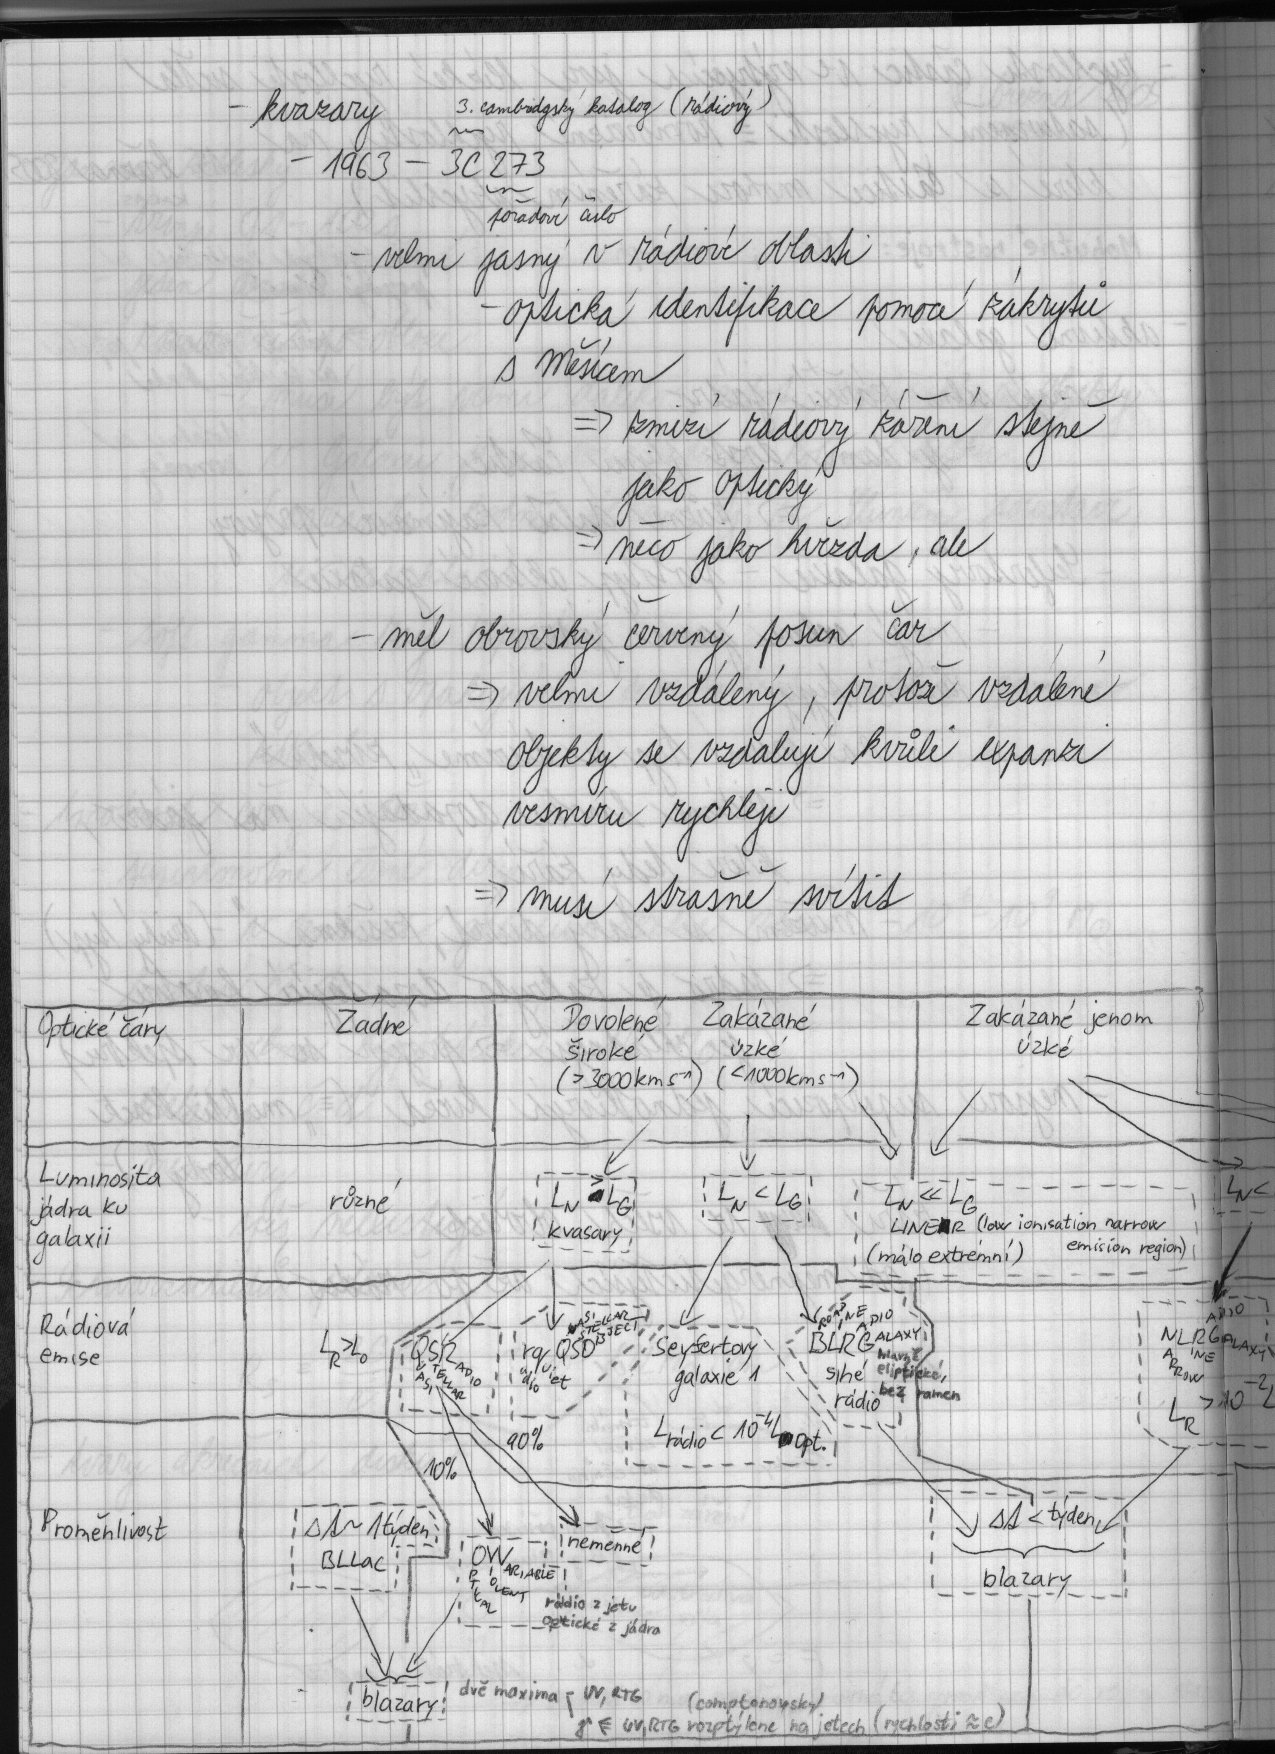 - kvazary 3. cambridgský katalog (rádiový)
- 1963 - 3C 273
pořadové číslo
- velmi jasný v rádiové oblasti
- optická identifikace pomocí zákrytů
s Měsícem
=> zmizí rádiový záření stejně
jako optický
=> něco jako hvězda, ale
- měl obrovský červený posun čar
=> velmi vzdálený, protože vzdálené
objekty se vzdalují kvůli expanzi
vesmíru rychleji
=> musí strašně svítit
Optické čáry Žádné Dovolené Zakázané Zakázané jenom
široké úzké úzké
(>3000kms⁻¹) (<1000kms⁻¹)
Luminosita
jádra ku
galaxii
různé
L_N > L_G
kvasary
L_N < L_G
L_N << L_G
LINER (low ionisation narrow
emision region)
(málo extrémní)
L_N <
Rádiová
emise
L_R > L_O
QSR
QUASI STELLAR RADIO
rq QSO
rádio quiet
QUASI STELLAR OBJECT
Seyfertovy
galaxie 1
L_rádio < 10⁻⁴ L_opt.
BLRG
BROAD LINE RADIO GALAXY
silné
rádio
hlavně
eliptické,
bez ramen
NLRG
NARROW LINE RADIO GALAXY
L_R > 10⁻² L
10%
90%
Proměnlivost
Δt ~ 1 týden
BLLac
OVV
OPTICAL VIOLENT VARIABLE
neměnné
rádio z jetu
optické z jádra
Δt < týden
blazary
blazary
dvě maxima - UV, RTG
γ ∈ UV, RTG rozptýlené na jetech (rychlosti ≈ c)
(comptonovsky)